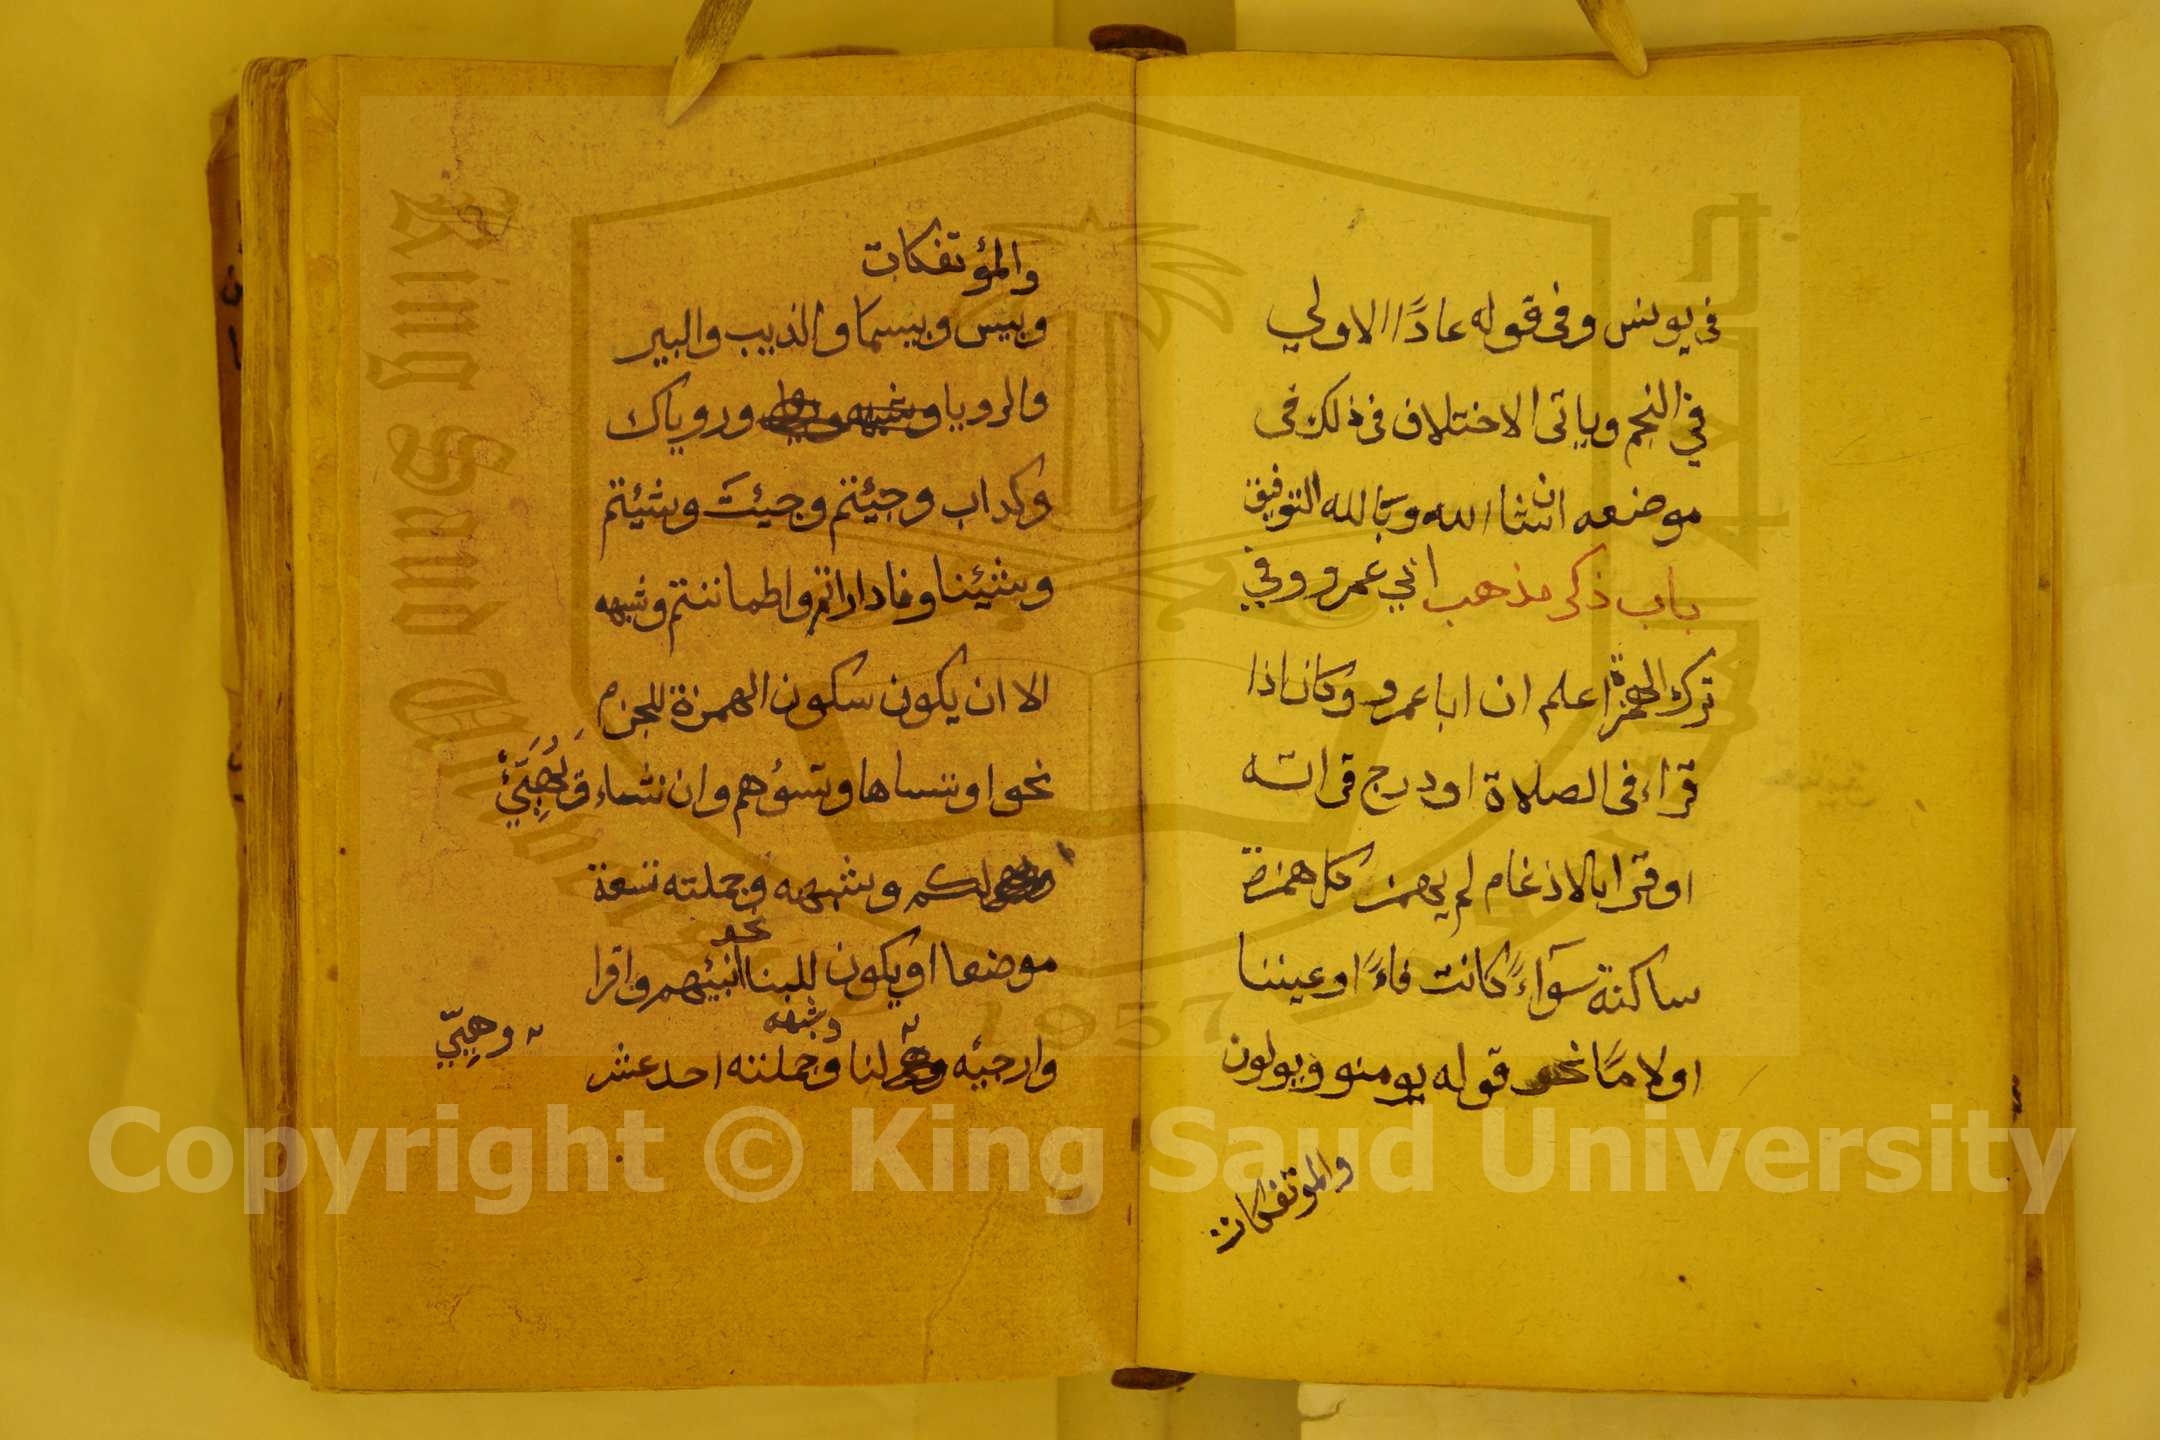 في يونس وفي قوله عادًا الاولي
في النجم وياتي الاختلاف في ذلك في
موضعه ان شا الله وبالله التوفيق
باب ذكر مذهب ابي عمرو وفي
ترك الهمزة اعلم ان ابا عمرو وكان اذا
قراء في الصلاة او درج قراته
او قرا بالادغام لم يهمز كل همزة
ساكنة سوآءً كانت فاءً او عيننا
او لا مًا نحو قوله يومنو ويولون
والموتفكات
والمؤتفكات
وبيس وبيسما والذيب والبير
والرويا وروياك
وكداب وجيئتم وجيئت وشيئتم
وشيئنا وفاداراتم واطماننتم وشبهه
الا ان يكون سكون الهمزة للجزم
نحو او ننساها وتسؤهم وان نشاء وَيُهَيِّئْ
لكم وشبهه وجملته تسعة
موضعا او يكون للبنا نحو انبيئهم واقرا
وارجيه لنا وشبهه وجملته احد عشر
وهِيّي
King Saud University
1957
Copyright © King Saud University